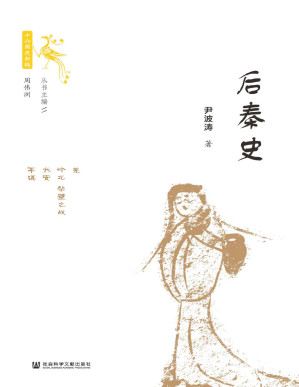 后秦史
尹波涛 著
十六国史新编
丛书主编//
周伟洲
羌
岭北 柴壁之战
长安
军镇
社会科学文献出版社